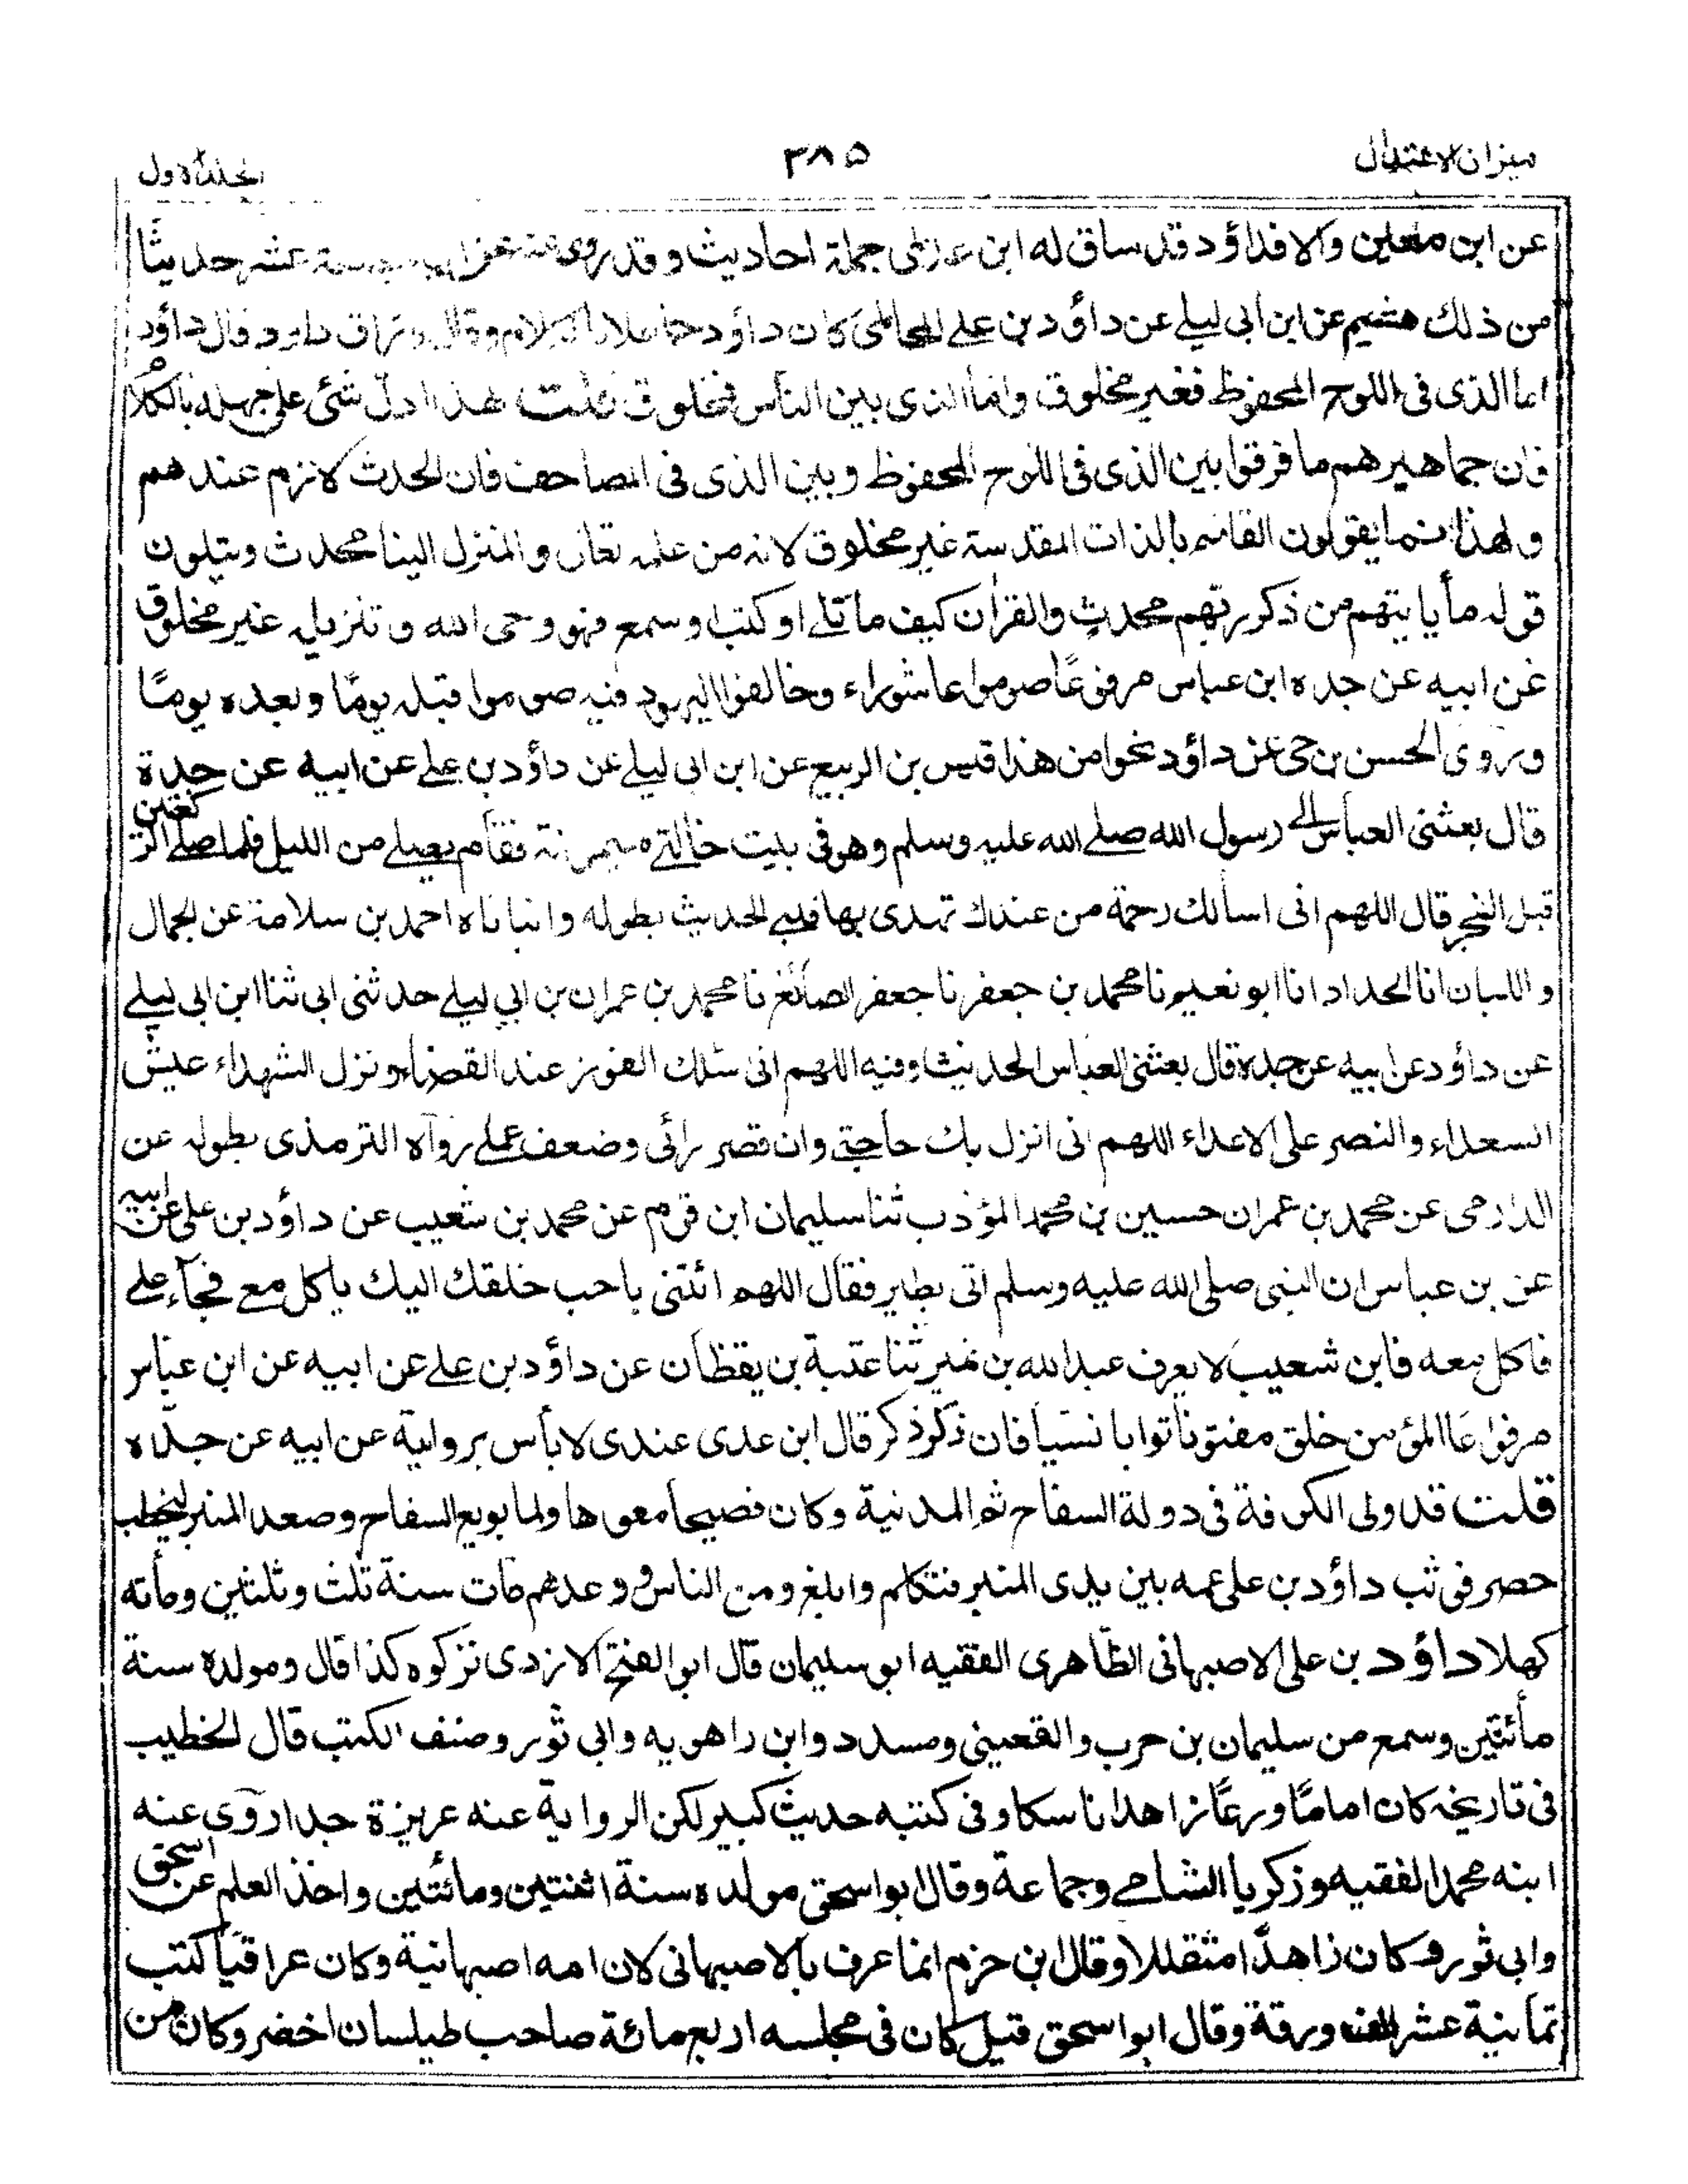 ميزان الاعتدال ٣٨٥ المجلد الاول
عن ابن معين والا فداؤد قد ساق له ابن عدى جملة احاديث وقد روى عشر حديثا
من ذلك هشيم عن ابن ابى ليلے عن داؤد بن علے كان داؤد وراق داود قال داؤد
اما الذى فى اللوح المحفوظ فغير مخلوق واما الذى بين الناس فمخلوق قلت هذا ادل شئ على جهله بالكلام
فان جماهيرهم ما فرقوا بين الذى فى اللوح المحفوظ وبين الذى فى المصاحف فان الحدث لازم عندهم
ولهذا انما يقولون القائم بالذات المقدسة غير مخلوق لانه من علمه تعالى والمنزل الينا محدث ويتلون
قوله ما ياتيهم من ذكر ربهم محدث والقران كيف ما تلے او كتب او سمع فهو وحى الله وتنزيله غير مخلوق
عن ابيه عن جده ابن عباس مرفوعًا صوموا عاشوراء وخالفوا اليهود فيه صوموا قبله يومًا وبعده يومًا
وروى الحسن بن حى عن داؤد نحوا من هذا قيس بن الربيع عن ابن ابى ليلے عن داؤد بن علے عن ابيه عن جدة
قال بعثنى العباس الے رسول الله صلے الله عليه وسلم وهو فى بيت خالتے ميمونة فقام يصلے من الليل فلما صلے الركعتين
قبل الفجر قال اللهم انى اسالك رحمة من عندك تهدى بها قلبے الحديث بطوله وانباناه احمد بن سلامة عن الجمال
واللبان انا الحداد انا ابو نعيم نا محمد بن جعفر نا جعفر الصائغ نا محمد بن عمران بن ابي ليلے حدثنى ابى ثنا ابن ابى ليلے
عن داؤد عن ابيه عن جده قال بعثنى العباس الحديث وفيه اللهم انى اسئلك الفوز عند القضاء ونزل الشهداء عيش
السعداء والنصر على الاعداء اللهم انى انزل بك حاجتے وان قصر رائى وضعف عملے رواه الترمذى بطوله عن
الدارمى عن محمد بن عمران حسين بن محمد المؤدب ثنا سليمان ابن قرم عن محمد بن شعيب عن داؤد بن على عن ابيه
عن بن عباس ان النبى صلى الله عليه وسلم اتى بطاير فقال اللهم ائتنى باحب خلقك اليك ياكل مع فجاء علے
فاكل معه فابن شعيب لا يعرف عبد الله بن نمير ثنا عتبة بن يقظان عن داؤد بن علے عن ابيه عن ابن عباس
مرفوعًا المؤمن خلق مفتونا توابا نسيا فان ذكر ذكر قال ابن عدى عندى لا بأس بروايته عن ابيه عن جده
قلت قد ولى الكوفة فى دولة السفاح ثم المدنية وكان فصيحا مفوها ولما بويع السفاح وصعد المنبر ليخطب
حصر فوثب داؤد بن على عمه بين يدى المنبر فتكلم وابلغ ومن الناس ووعدهم مات سنة ثلث وثلثين ومأته
كهلا داؤد بن على الاصبهانى الظاهرى الفقيه ابو سليمان قال ابو الفتح الازدى تركوه كذا قال ومولده سنة
مأئتين وسمع من سليمان بن حرب والقعنبى ومسدد وابن راهويه وابي ثور وصنف الكتب قال الخطيب
فى تاريخه كان امامًا ورعًا زاهدا ناسكا وفى كتبه حديث كبير لكن الرواية عنه عزيزة جدا روى عنه
ابنه محمد الفقيه وزكريا الساجے وجماعة وقال ابو اسحق مولده سنة اثنتين ومائتين واخذ العلم عن اسحق
وابى ثور وكان زاهدًا متقللا وقال ابن حزم انما عرف بالاصبهانى لان امه اصبهانية وكان عراقيا كتب
ثمانية عشر الف ورقة وقال ابو اسحق قيل كان فى مجلسه اربع مائة صاحب طيلسان اخضر وكان من